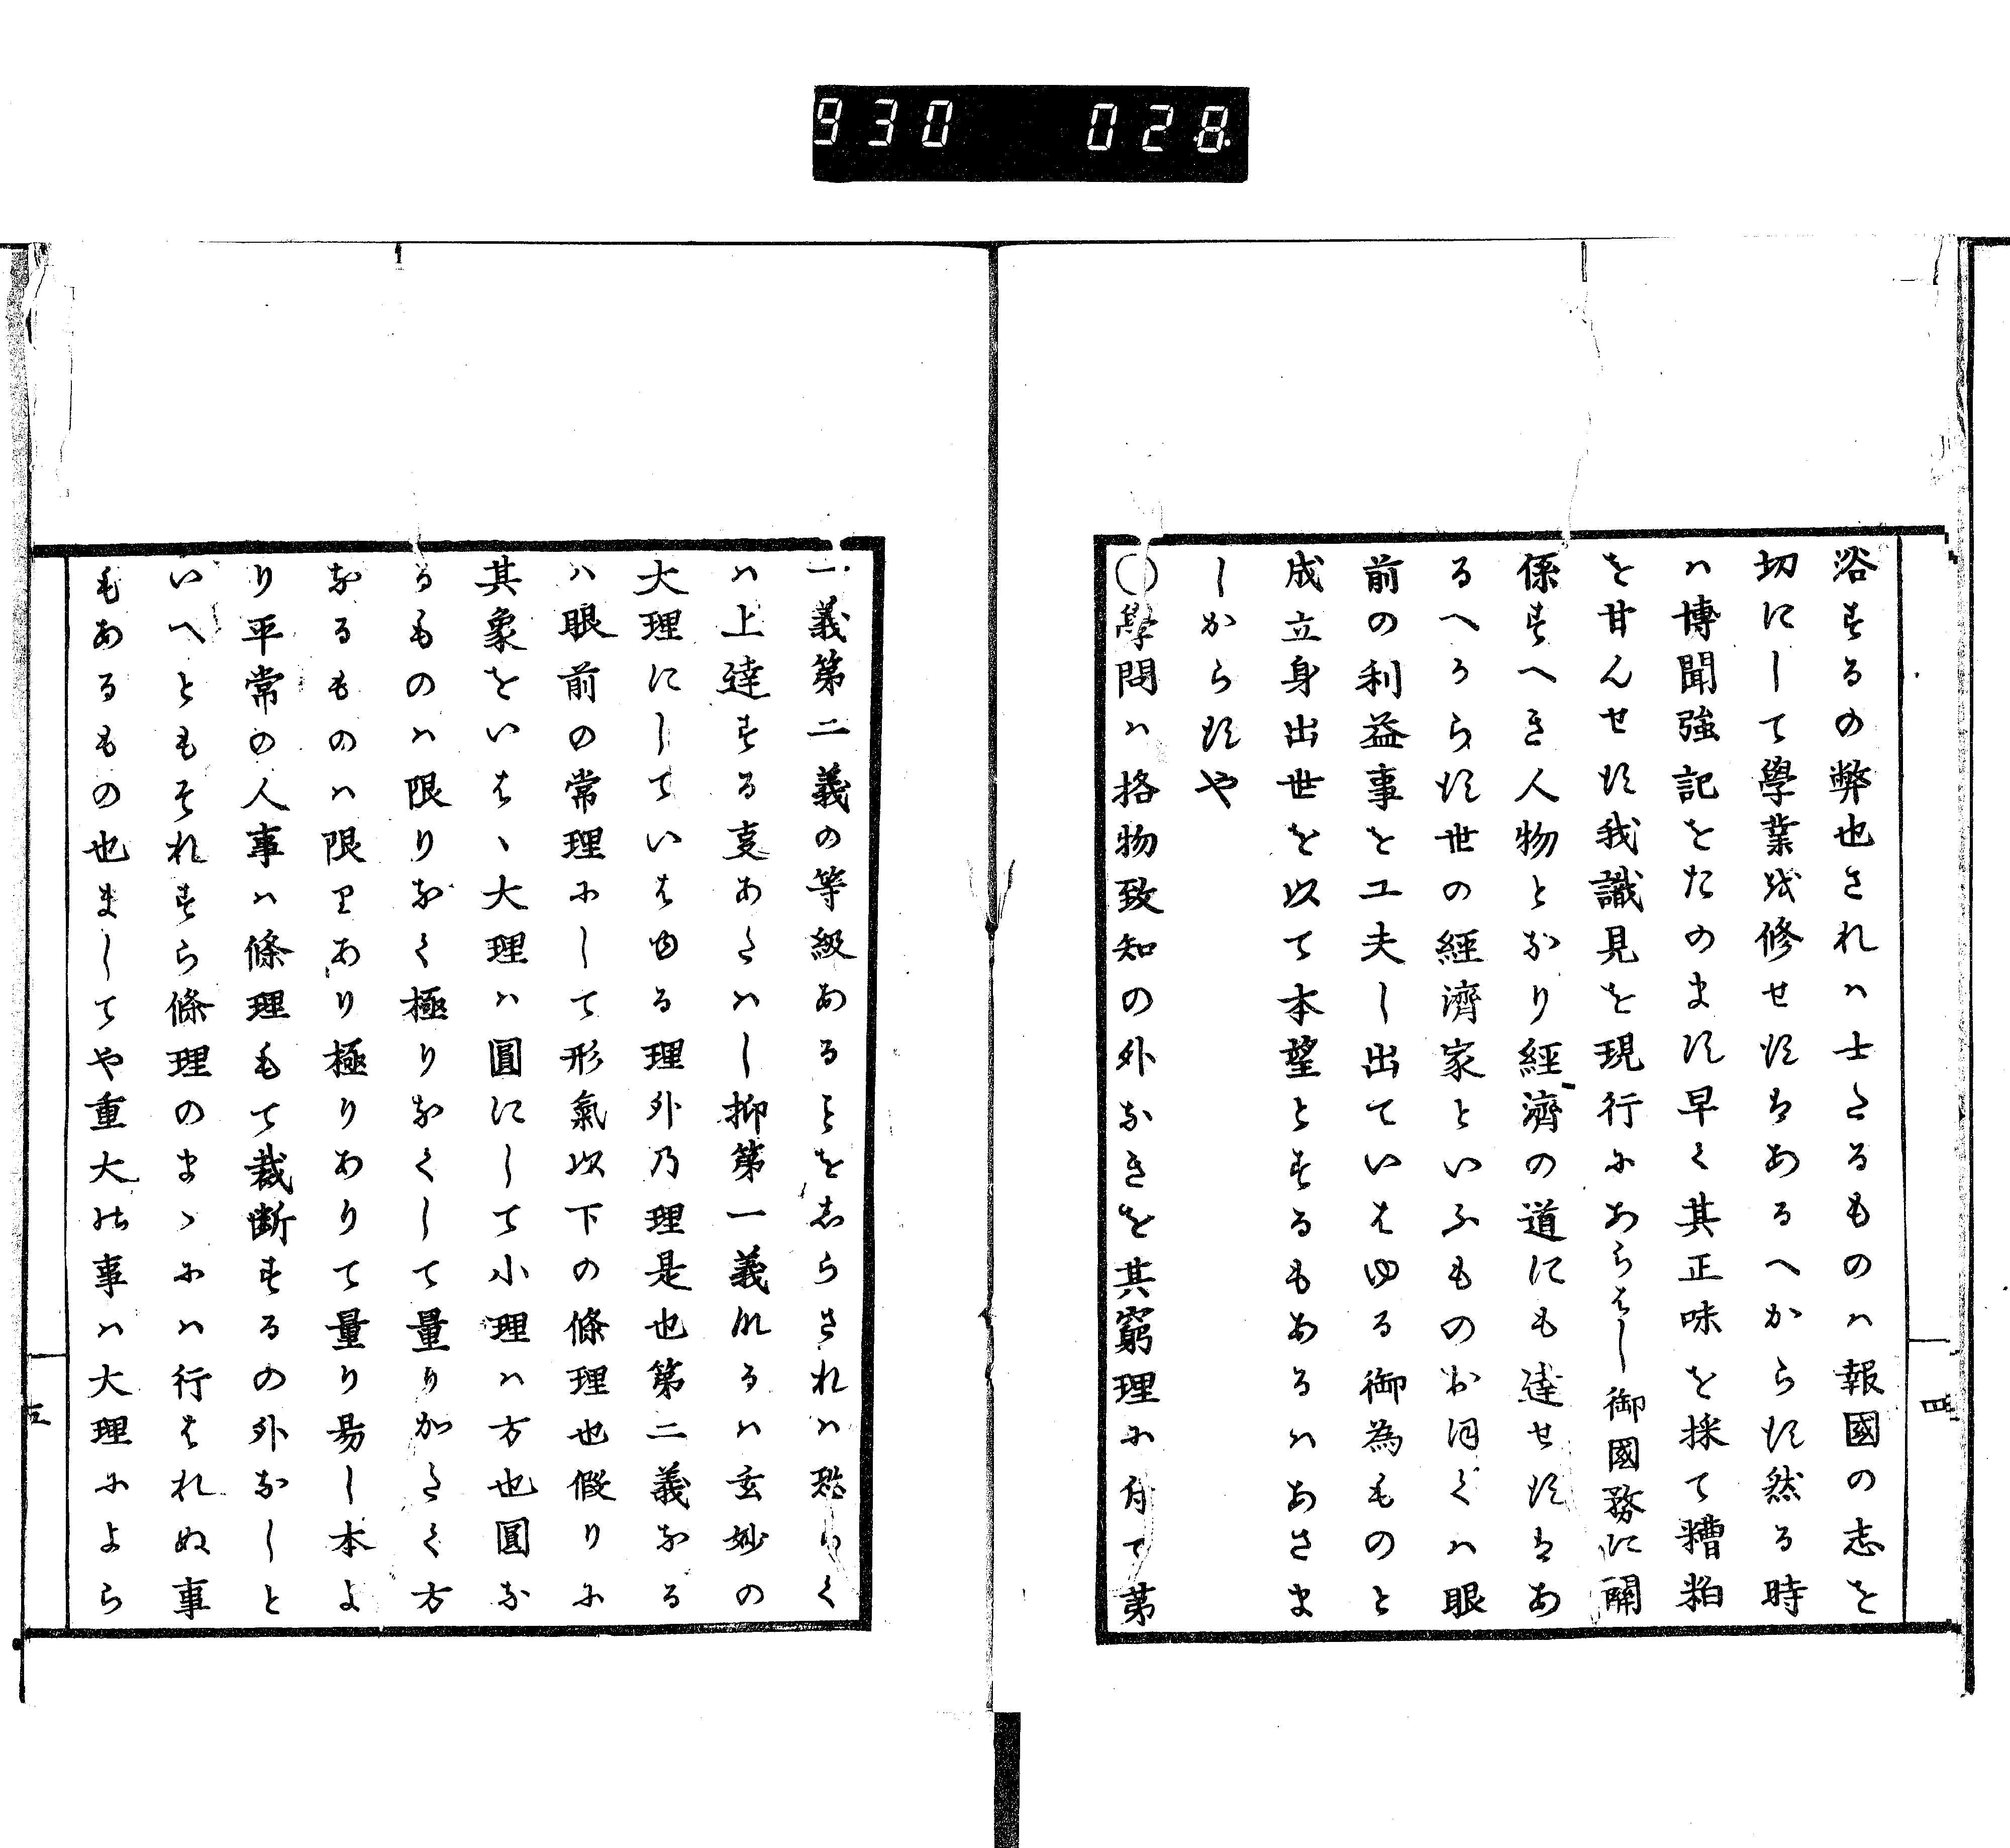 930 028
四
浴するの弊也されハ士たるものハ報國の志を
切にして學業を修せすはあるへからす然る時
ハ博聞強記をたのます早く其正味を採て糟粕
を甘んせす我識見を現行にあらはし御國務に關
係すへき人物となり經濟の道にも達せすはあ
るへからす世の經濟家といふものおほくハ眼
前の利益事を工夫し出ていはゆる御為ものと
成立身出世を以て本望とするもあるハあさま
しからすや
○學問ハ格物致知の外なきを其窮理に付て第
一義第二義の等級あることを志らされハ恐らく
ハ上達する事あたハし抑第一義なるハ玄妙の
大理にしていはゆる理外乃理是也第二義なる
ハ眼前の常理にして形氣以下の條理也假りに
其象をいはゝ大理ハ圓にして小理ハ方也圓な
るものハ限りなく極りなくして量り加たく方
なるものハ限りあり極りありて量り易し本よ
り平常の人事ハ條理もて裁断するの外なしと
いへともそれすら條理のまゝにハ行はれぬ事
もあるもの也ましてや重大の事ハ大理によら
五